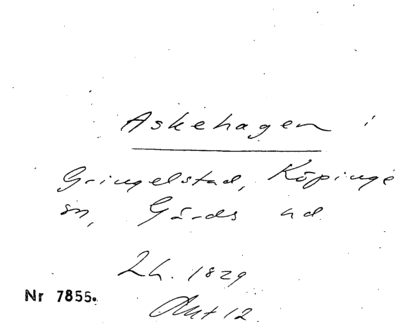 Askehagen i
Gringelstad, Köpinge
sn, Gärds hd
Lh. 1829
Nr 7855.
Akt 12